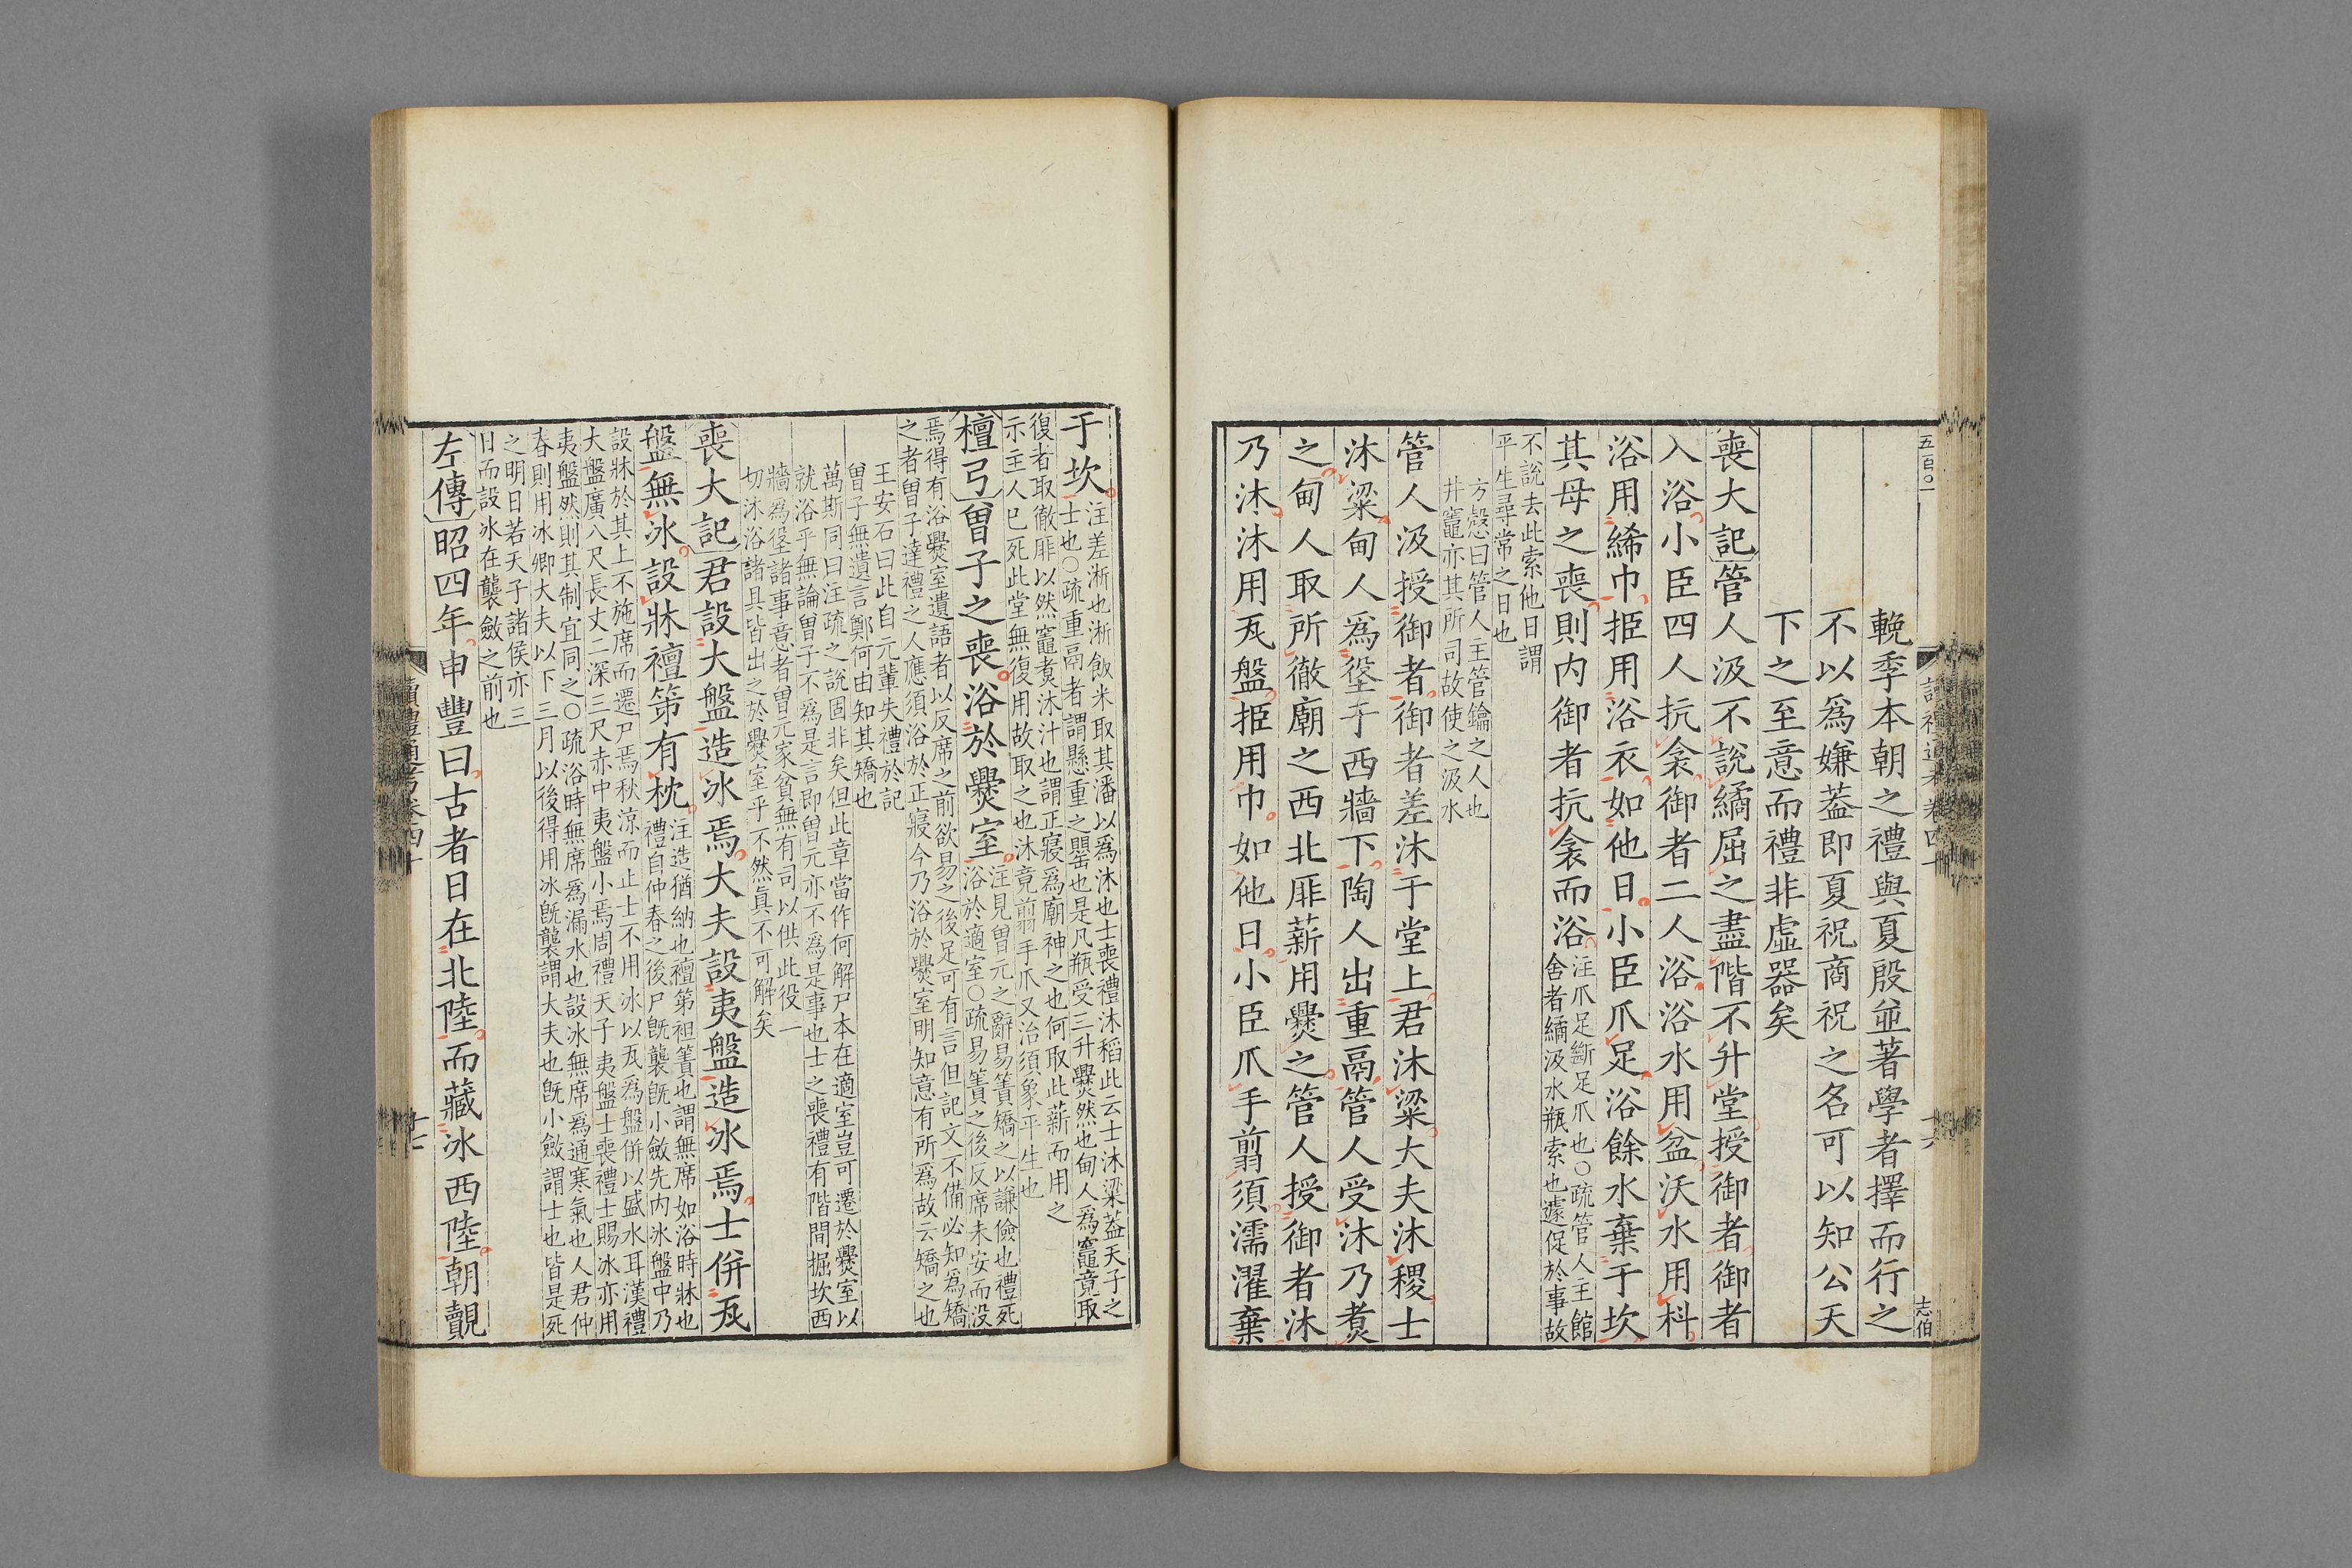 五百〇一
讀禮通考卷四十
十六
志伯
輓季本朝之禮與夏殷並著學者擇而行之
不以爲嫌葢即夏祝商祝之名可以知公天
下之至意而禮非虛器矣
喪大記管人汲不說繘屈之盡階不升堂授御者御者
入浴小臣四人抗衾御者二人浴浴水用盆沃水用枓
浴用絺巾挋用浴衣如他日小臣爪足浴餘水棄于坎
其母之喪則内御者抗衾而浴
注爪足斷足爪也○疏管人主館
舍者繘汲水瓶索也遽促於事故
不說去此索他日謂
平生尋常之日也
方慤曰管人主管鑰之人也
井竈亦其所司故使之汲水
管人汲授御者御者差沐于堂上君沐粱大夫沐稷士
沐粱甸人爲垼于西牆下陶人出重鬲管人受沐乃煑
之甸人取所徹廟之西北厞薪用爨之管人授御者沐
乃沐沐用瓦盤挋用巾如他日小臣爪手翦須濡濯棄
于坎
注差淅也淅飯米取其潘以爲沐也士喪禮沐稻此云士沐粱葢天子之
士也○疏重鬲者謂懸重之罌也是凡瓶受三升爨然也甸人爲竈竟取
復者取徹厞以然竈煑沐汁也謂正寢爲廟神之也何取此薪而用之
示主人已死此堂無復用故取之也沐竟翦手爪又治須象平生也
檀弓曾子之喪浴於爨室
注見曾元之辭易簀矯之以謙儉也禮死
浴於適室○疏易簀之後反席未安而没
焉得有浴爨室遺語者以反席之前欲易之後足可有言但記文不備必知爲矯
之者曾子達禮之人應須浴於正寢今乃浴於爨室明知意有所爲故云矯之也
王安石曰此自元輩失禮於記
曾子無遺言鄭何由知其矯也
萬斯同曰注疏之說固非矣但此章當作何解尸本在適室豈可遷於爨室以
就浴乎無論曾子不爲是言即曾元亦不爲是事也士之喪禮有階間掘坎西
牆爲垼諸事意者曾元家貧無有司以供此役一
切沐浴諸具皆出之於爨室乎不然眞不可解矣
喪大記君設大盤造冰焉大夫設夷盤造冰焉士併瓦
盤無冰設牀襢第有枕
注造猶納也襢第袒簀也謂無席如浴時牀也
禮自仲春之後尸旣襲旣小斂先内冰盤中乃
設牀於其上不施席而遷尸焉秋涼而止士不用冰以瓦爲盤併以盛水耳漢禮
大盤廣八尺長丈二深三尺赤中夷盤小焉周禮天子夷盤士喪禮士賜冰亦用
夷盤然則其制宜同之○疏浴時無席爲漏水也設冰無席爲通寒氣也人君仲
春則用冰卿大夫以下三月以後得用冰旣襲謂大夫也旣小斂謂士也皆是死
之明日若天子諸侯亦三
日而設冰在襲斂之前也
左傳昭四年申豐曰古者日在北陸而藏冰西陸朝覿
讀禮通考卷四十
十七